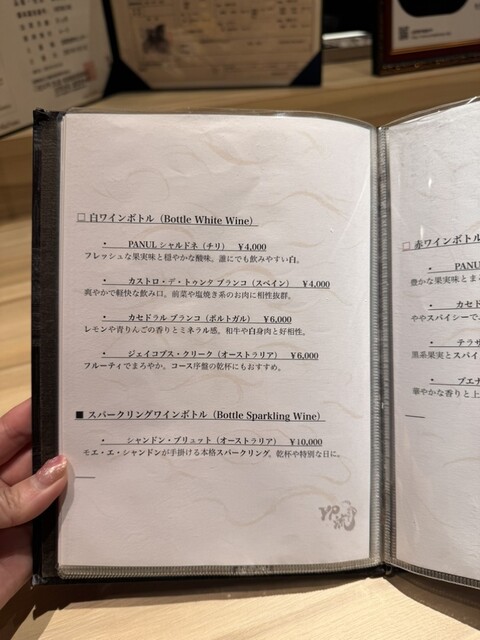 □ 白ワインボトル（Bottle White Wine）
・ PANUL シャルドネ（チリ） ¥4,000
フレッシュな果実味と穏やかな酸味。誰にでも飲みやすい白。
・ カストロ・デ・トゥンタ ブランコ（スペイン） ¥4,000
爽やかで軽快な飲み口。前菜や塩焼き系のお肉に相性抜群。
・ カセドラル ブランコ（ポルトガル） ¥6,000
レモンや青りんごの香りとミネラル感。和牛や白身肉と好相性。
・ ジェイコブス・クリーク（オーストラリア） ¥6,000
フルーティでまろやか。コース序盤の乾杯にもおすすめ。
■ スパークリングワインボトル（Bottle Sparkling Wine）
・ シャンドン・ブリュット（オーストラリア） ¥10,000
モエ・エ・シャンドンが手掛ける本格スパークリング。乾杯や特別な日に。
□ 赤ワインボトル
・ PANU
豊かな果実味とま
・ カセド
ややスパイシーで、
・ テラザ
黒系果実とスパイ
・ ブエナ
華やかな香りと上